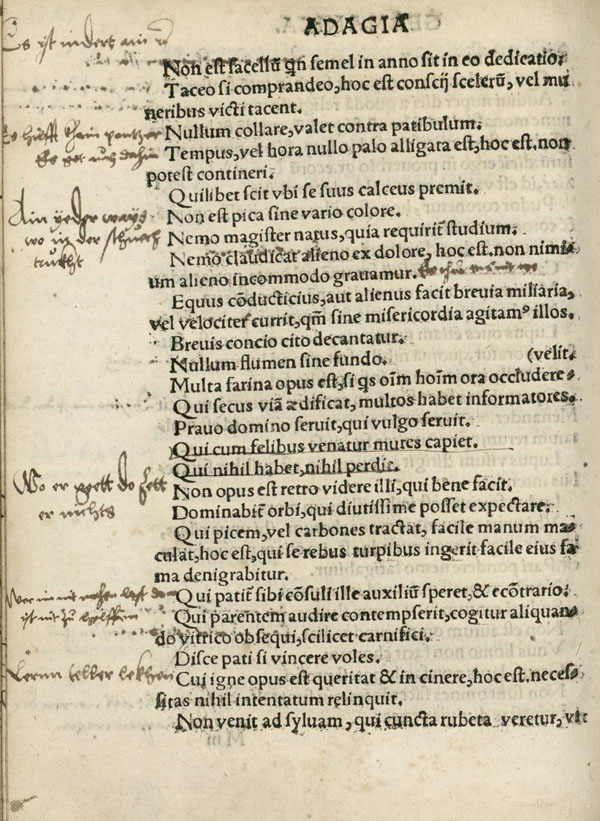 ADAGIA
Es ist nindert ain
Non est sacellū qn̄ semel in anno sit in eo dedicatio.
Taceo si comprandeo, hoc est conscij scelerū, vel mu
neribus victi tacent.
Nullum collare, valet contra patibulum.
Es hilfft khain pantzer
Tempus, vel hora nullo palo alligata est, hoc est. non
potest contineri.
Quilibet scit vbi se suus calceus premit.
Ain yeder ways
wo in der schuech
truckht
Non est pica sine vario colore.
Nemo magister natus, quia requirit̄ studium.
Nemo claudicat alieno ex dolore, hoc est. non nimi⸗
um alieno incommodo grauamur.
Equus cōducticius, aut alienus facit breuia miliaria,
vel velociter currit, qm̄ sine misericordia agitamꝰ illos.
Breuis concio cito decantatur.
Nullum flumen sine fundo. (velit.
Multa farina opus est, si qs oīm hoīm ora occludere⸗
Qui secus viā ædificat, multos habet informatores.
Prauo domino seruit, qui vulgo seruit.
Qui cum felibus venatur mures capiet.
Qui nihil habet, nihil perdit.
Wo er
er nichts
Non opus est retro videre illi, qui bene facit.
Dominabit̄ orbi, qui diutissime posset expectare.
Qui picem, vel carbones tractat, facile manum ma⸗
culat, hoc est, qui se rebus turpibus ingerit facile eius fa⸗
ma denigrabitur.
Qui patit̄ sibi cōsuli ille auxiliū speret, & ecōtrario.
ist nit zu helffen
Qui parentem audire contempserit, cogitur aliquan⸗
do vitrico obsequi, scilicet carnifici.
Disce pati si vincere voles.
Lernn teller lekhen
Cui igne opus est queritat & in cinere, hoc est. neces⸗
sitas nihil intentatum relinquit.
Non venit ad syluam, qui cuncta rubeta veretur, vit